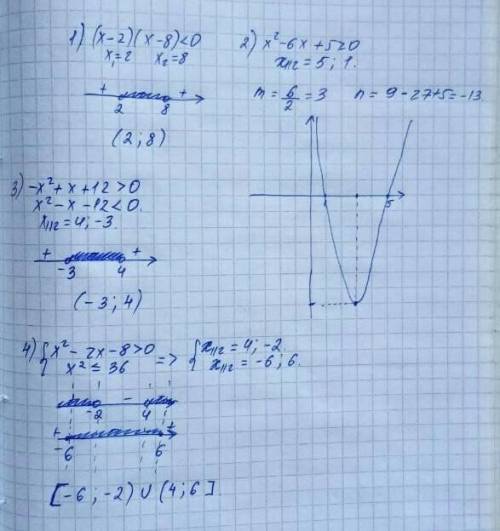 1) (x-2)(x-8)<0
x₁=2 x₂=8
+ +
2 8
(2;8)
2) x²-6x+5≥0
x₁,₂=5; 1.
m=6/2=3 n=9-27+5=-13.
1 5
3) -x²+x+12>0
x²-x-12<0.
x₁,₂=4; -3.
+ +
-3 4
(-3; 4)
4) {x²-2x-8>0 => {x₁,₂=4; -2.
x²≤36 x₁,₂=-6; 6.
-
-2 4
+ +
-6 6
[-6; -2) ∪ (4; 6].